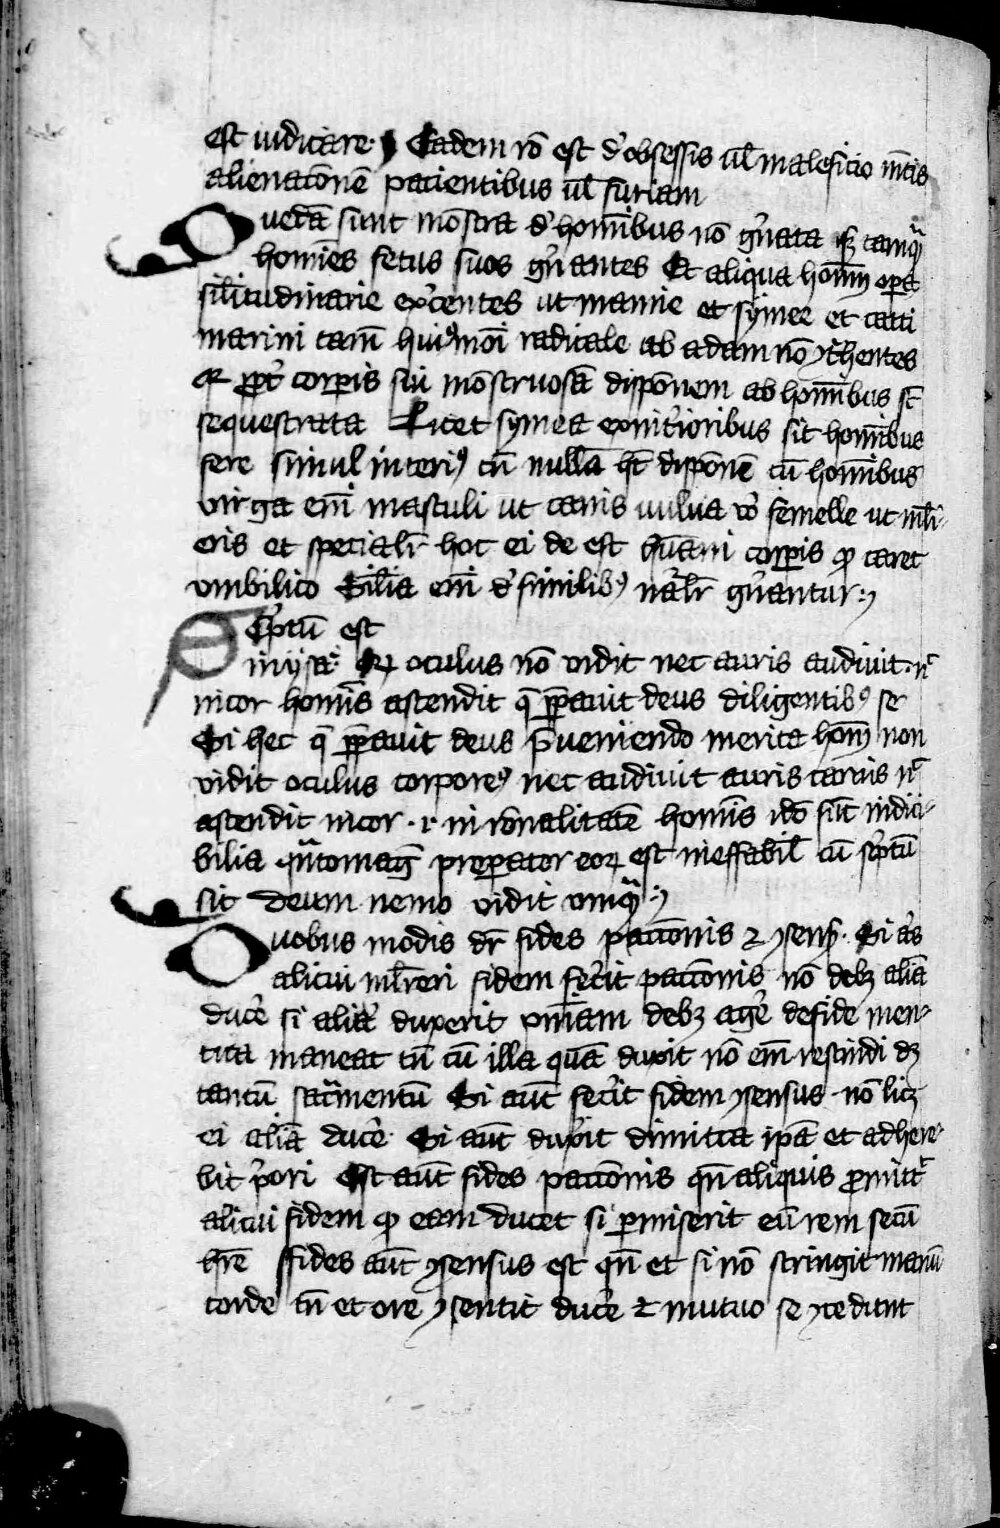 est iudicare · Eadem rō est d' obsessis ul̄ maleficio mētis
alienacōnē pacientibus ul̄ furiam
Quedā sunt mōstra d' homībus nō gn̄ata sꝫ tamqͣ
homīes fetus suos gn̄antes Et aliqua homīū oꝑa
sil̄itudinarie exc̄entes ut mamie et symee et catti
marini tam̄ huiꝰmōi radicale ab adam nō ꝯth̄entes
Qꝛ ꝓpt' corꝑis sui mōstruosā disponem ab homībus st̄
sequestrata Licet symea exnit'ioribus sit homībus
fere simul interiꝰ tn̄ nullā ht̄ disponē cū homībus
virga em̄ masculi ut canis uulua vō femelle ut ml̄i-
eris et specialr̄ hoc ei de est hūani corꝑis ꝙ caret
vmbilico Sil̄ia em̄ d' similibꝰ nāl̄r gn̄antur :
Sc'ptū est
in ysa: Qꝛ oculus nō vidit nec auris audiuit · nͨ
in cor homīs ascendit q̄ p̄ꝑauit deus diligentibꝰ se
Si hec q̄ p̄ꝑauit deus p̄ueniendo merita homīū non
vidit oculus corporeꝰ nec audiuit auris carnis nͨ
ascendit in cor · i · in rōnalitatē homīs ido sūt indici-
bilia qͣntomaḡ preꝑator eoꝝ est ineffabil̄ cū sc'ptū
sit deum nemo vidit vmqͣ :
Duobus modis dr̄ fides pactiōnis ⁊ ꝯsensꝰ · Si a's
alicui ml̄'eri fidem fec̄it pactiōnis nō debꝫ aliā
duce' si alit' duxerit pn̄iam debꝫ age' de fide men-
tita maneat tn̄ cū illa quā duxit nō em̄ rescindi dꝫ
tantū sac̄mentū Si aut̄ fec̄it fidem ꝯsensus · nō licꝫ
ei aliā duce' · Si aut̄ dux'it dimitta ip̄ā et adhere-
bit p'ori Est aut̄ fides pactiōnis qn̄ aliquis ꝓmittͭ
alicui fidem ꝙ eam ducet si ꝑmiserit eū rem secū
hr̄e ffides aut̄ ꝯsensus est qn̄ et si nō stringit manū
corde tn̄ et ore ꝯsentit duce' ⁊ mutuo se ꝯcedunt